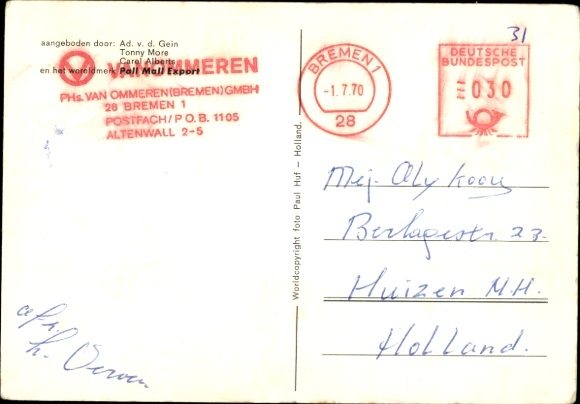 aangeboden door: Ad. v. d. Gein
Tonny More
Carel Alberts
en het wereldmerk Pall Mall Export
VAN OMMEREN
PHs. VAN OMMEREN (BREMEN) GMBH
28 BREMEN 1
POSTFACH / P.O.B. 1105
ALTENWALL 2-5
BREMEN 1
-1.7.70
28
31
DEUTSCHE
BUNDESPOST
030
Worldcopyright foto Paul Huf – Holland.
Mej. Aly Kooy
Berlagestr. 23.
Huizen N.H.
Holland.